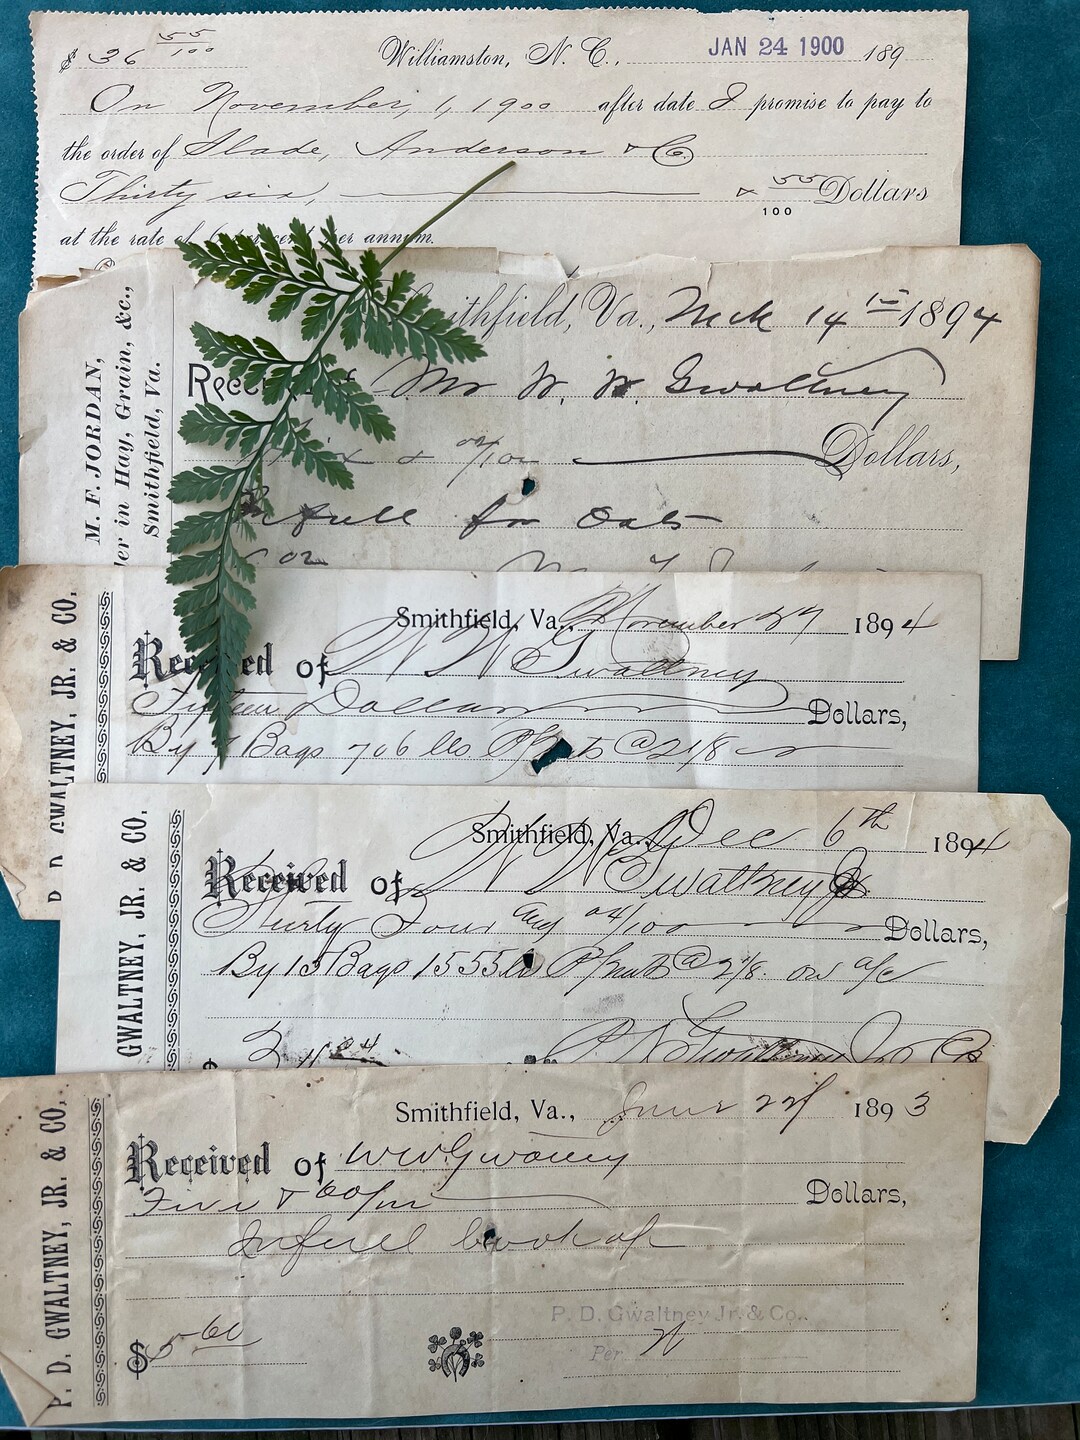 $ 36 55/100 Williamston, N. C., JAN 24 1900 189
On November, 1, 1900 after date I promise to pay to
the order of Slade, Anderson & Co
Thirty six, & 55/100 Dollars
at the rate of 6 per cent per annum.
M. F. JORDAN,
er in Hay, Grain, &c.,
Smithfield, Va.
ithfield, Va., 14 1894
Rece of Mr W. W. Gwaltney
& 02/100 Dollars,
In full for Oats
02
P. D. GWALTNEY, JR. & CO.
Smithfield, Va., November 27 1894
Received of W W Gwaltney
Fifteen Dollars Dollars,
By 7 Bags 706 lbs P/nuts @ 2 1/8
GWALTNEY, JR. & CO.
Smithfield, Va., Dec 6th 1894
Received of W W Gwaltney
Thirty Four and 04/100 Dollars,
By 15 Bags 1555 lbs P/nuts @ 2 1/8 on a/c
$ 34 04 P D Gwaltney Jr & Co
P. D. GWALTNEY, JR. & CO.
Smithfield, Va., June 1893
Received of W W Gwaltney
Five & 60/100 Dollars,
In full book a/c
P. D. Gwaltney Jr. & Co.
$ 5 60 Per